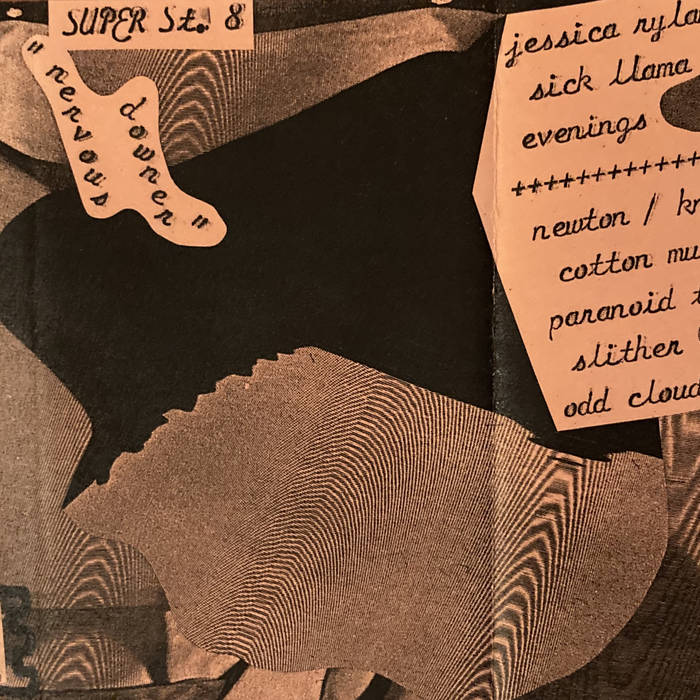 SUPER St. 8
"nervous
downer"
jessica
sick llama
evenings
+++++++++++++
newton /
cotton
paranoid
slither
odd